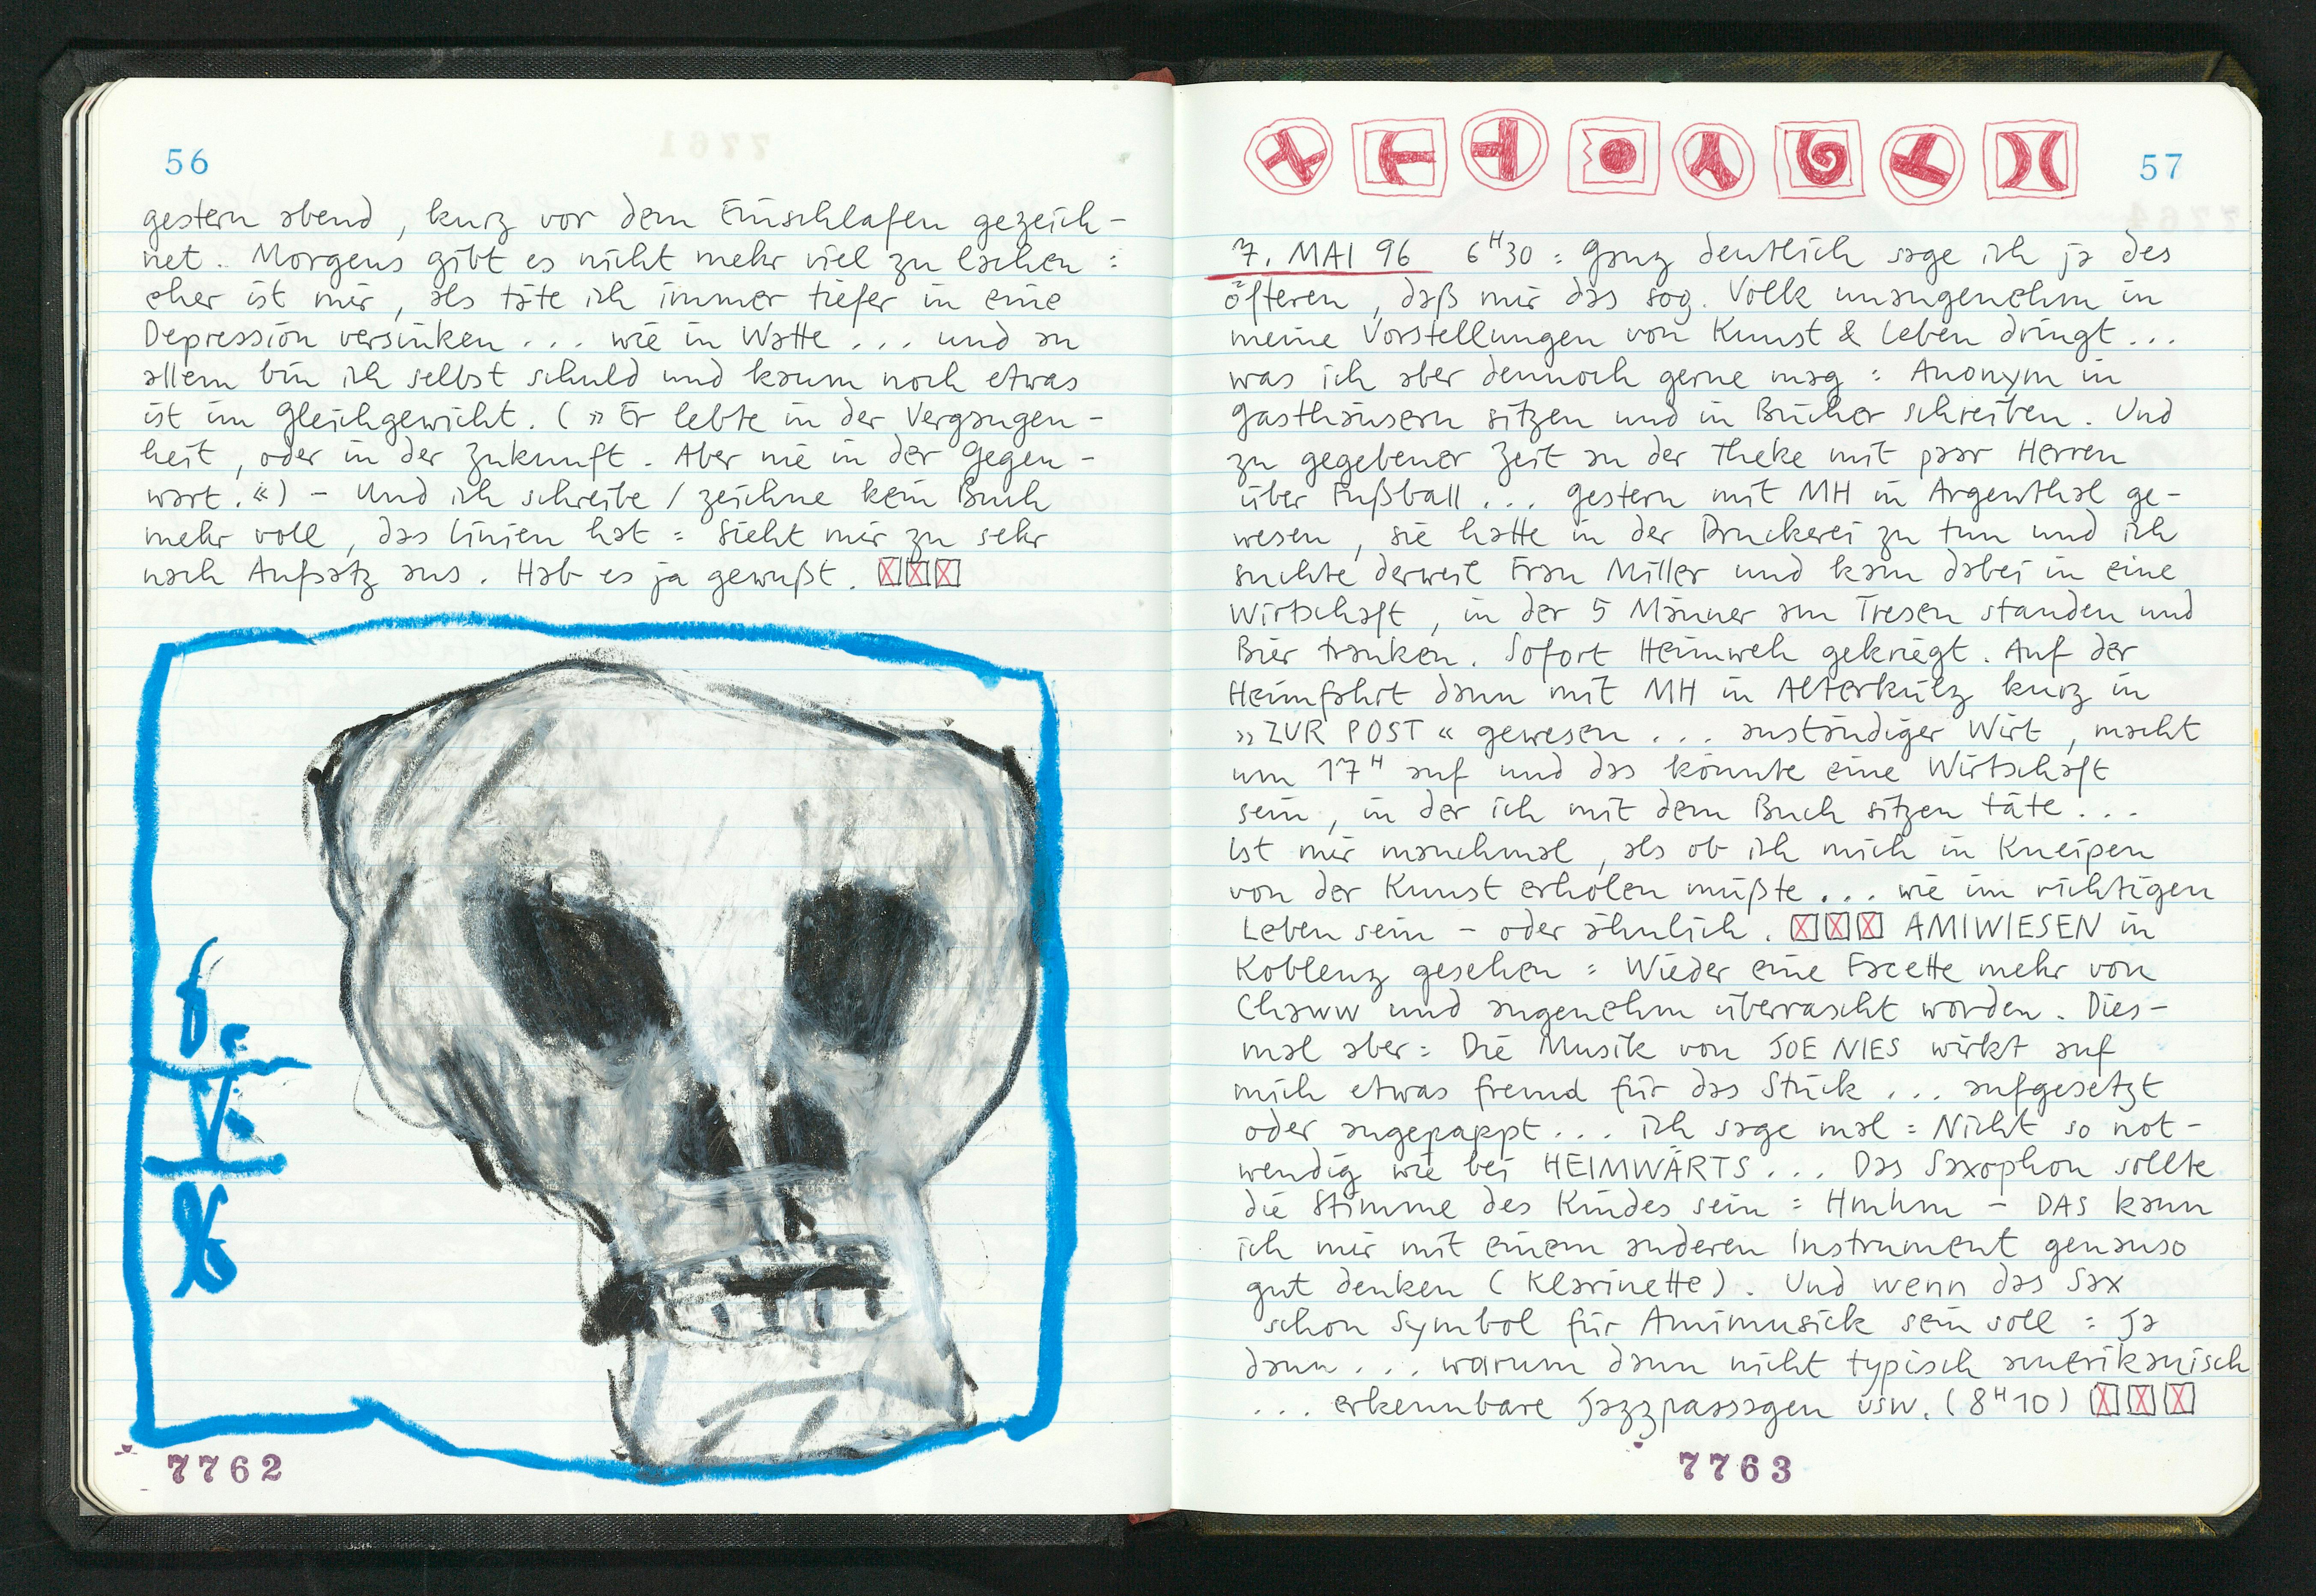 56
gestern abend, kurz vor dem Einschlafen gezeich-
net. Morgens gibt es nicht mehr viel zu lachen :
eher ist mir, als täte ich immer tiefer in eine
Depression versinken ... wie in Watte ... und an
allem bin ich selbst schuld und kaum noch etwas
ist im Gleichgewicht. (» Er lebte in der Vergangen-
heit, oder in der Zukunft. Aber nie in der Gegen-
wart. «) – Und ich schreibe / zeichne kein Buch
mehr voll, das Linien hat : Sieht mir zu sehr
nach Aufsatz aus. Hab es ja gewußt.
7762
57
7. MAI 96 6H30 : Ganz deutlich sage ich ja des
öfteren, daß mir das sog. Volk unangenehm in
meine Vorstellungen von Kunst & Leben dringt ...
was ich aber dennoch gerne mag : Anonym in
Gasthäusern sitzen und in Bücher schreiben. Und
zu gegebener Zeit an der Theke mit paar Herren
über Fußball ... Gestern mit MH in Argenthal ge-
wesen, sie hatte in der Druckerei zu tun und ich
suchte derweil Frau Miller und kam dabei in eine
Wirtschaft, in der 5 Männer am Tresen standen und
Bier tranken. Sofort Heimweh gekriegt. Auf der
Heimfahrt dann mit MH in Alterkülz kurz in
» ZUR POST « gewesen ... anständiger Wirt, macht
um 17H auf und das könnte eine Wirtschaft
sein, in der ich mit dem Buch sitzen täte ...
Ist mir manchmal, als ob ich mich in Kneipen
von der Kunst erholen müßte ... wie im richtigen
Leben sein – oder ähnlich. AMIWIESEN in
Koblenz gesehen : Wieder eine Facette mehr von
Chaww und angenehm überrascht worden. Dies-
mal aber : Die Musik von JOE NIES wirkt auf
mich etwas fremd für das Stück ... aufgesetzt
oder angepappt ... ich sage mal : Nicht so not-
wendig wie bei HEIMWÄRTS ... Das Saxophon sollte
die Stimme des Kindes sein : Hmhm – DAS kann
ich mir mit einem anderen Instrument genauso
gut denken (Klarinette). Und wenn das Sax
schon Symbol für Amimusick sein soll : Ja
dann ... warum dann nicht typisch amerikanisch
... erkennbare Jazzpassagen usw. (8H10)
7763